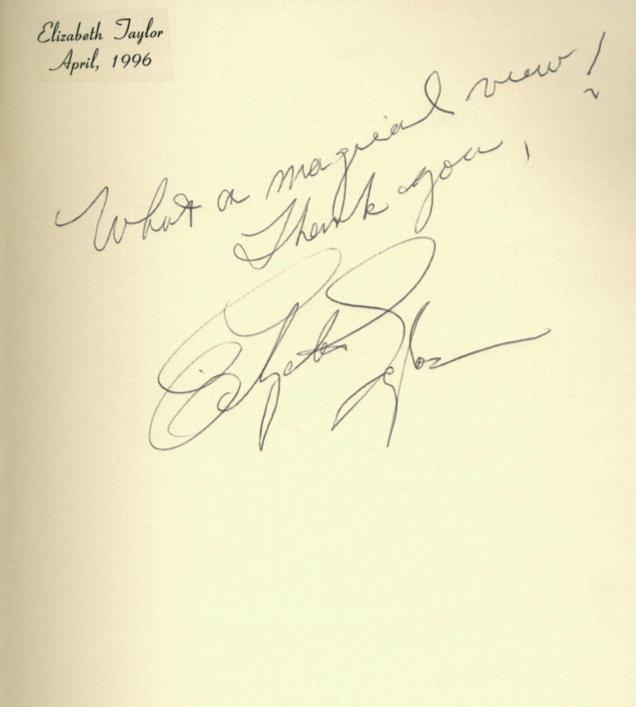 Elizabeth Taylor
April, 1996
What a magical view!
Thank you,
Elizabeth Taylor